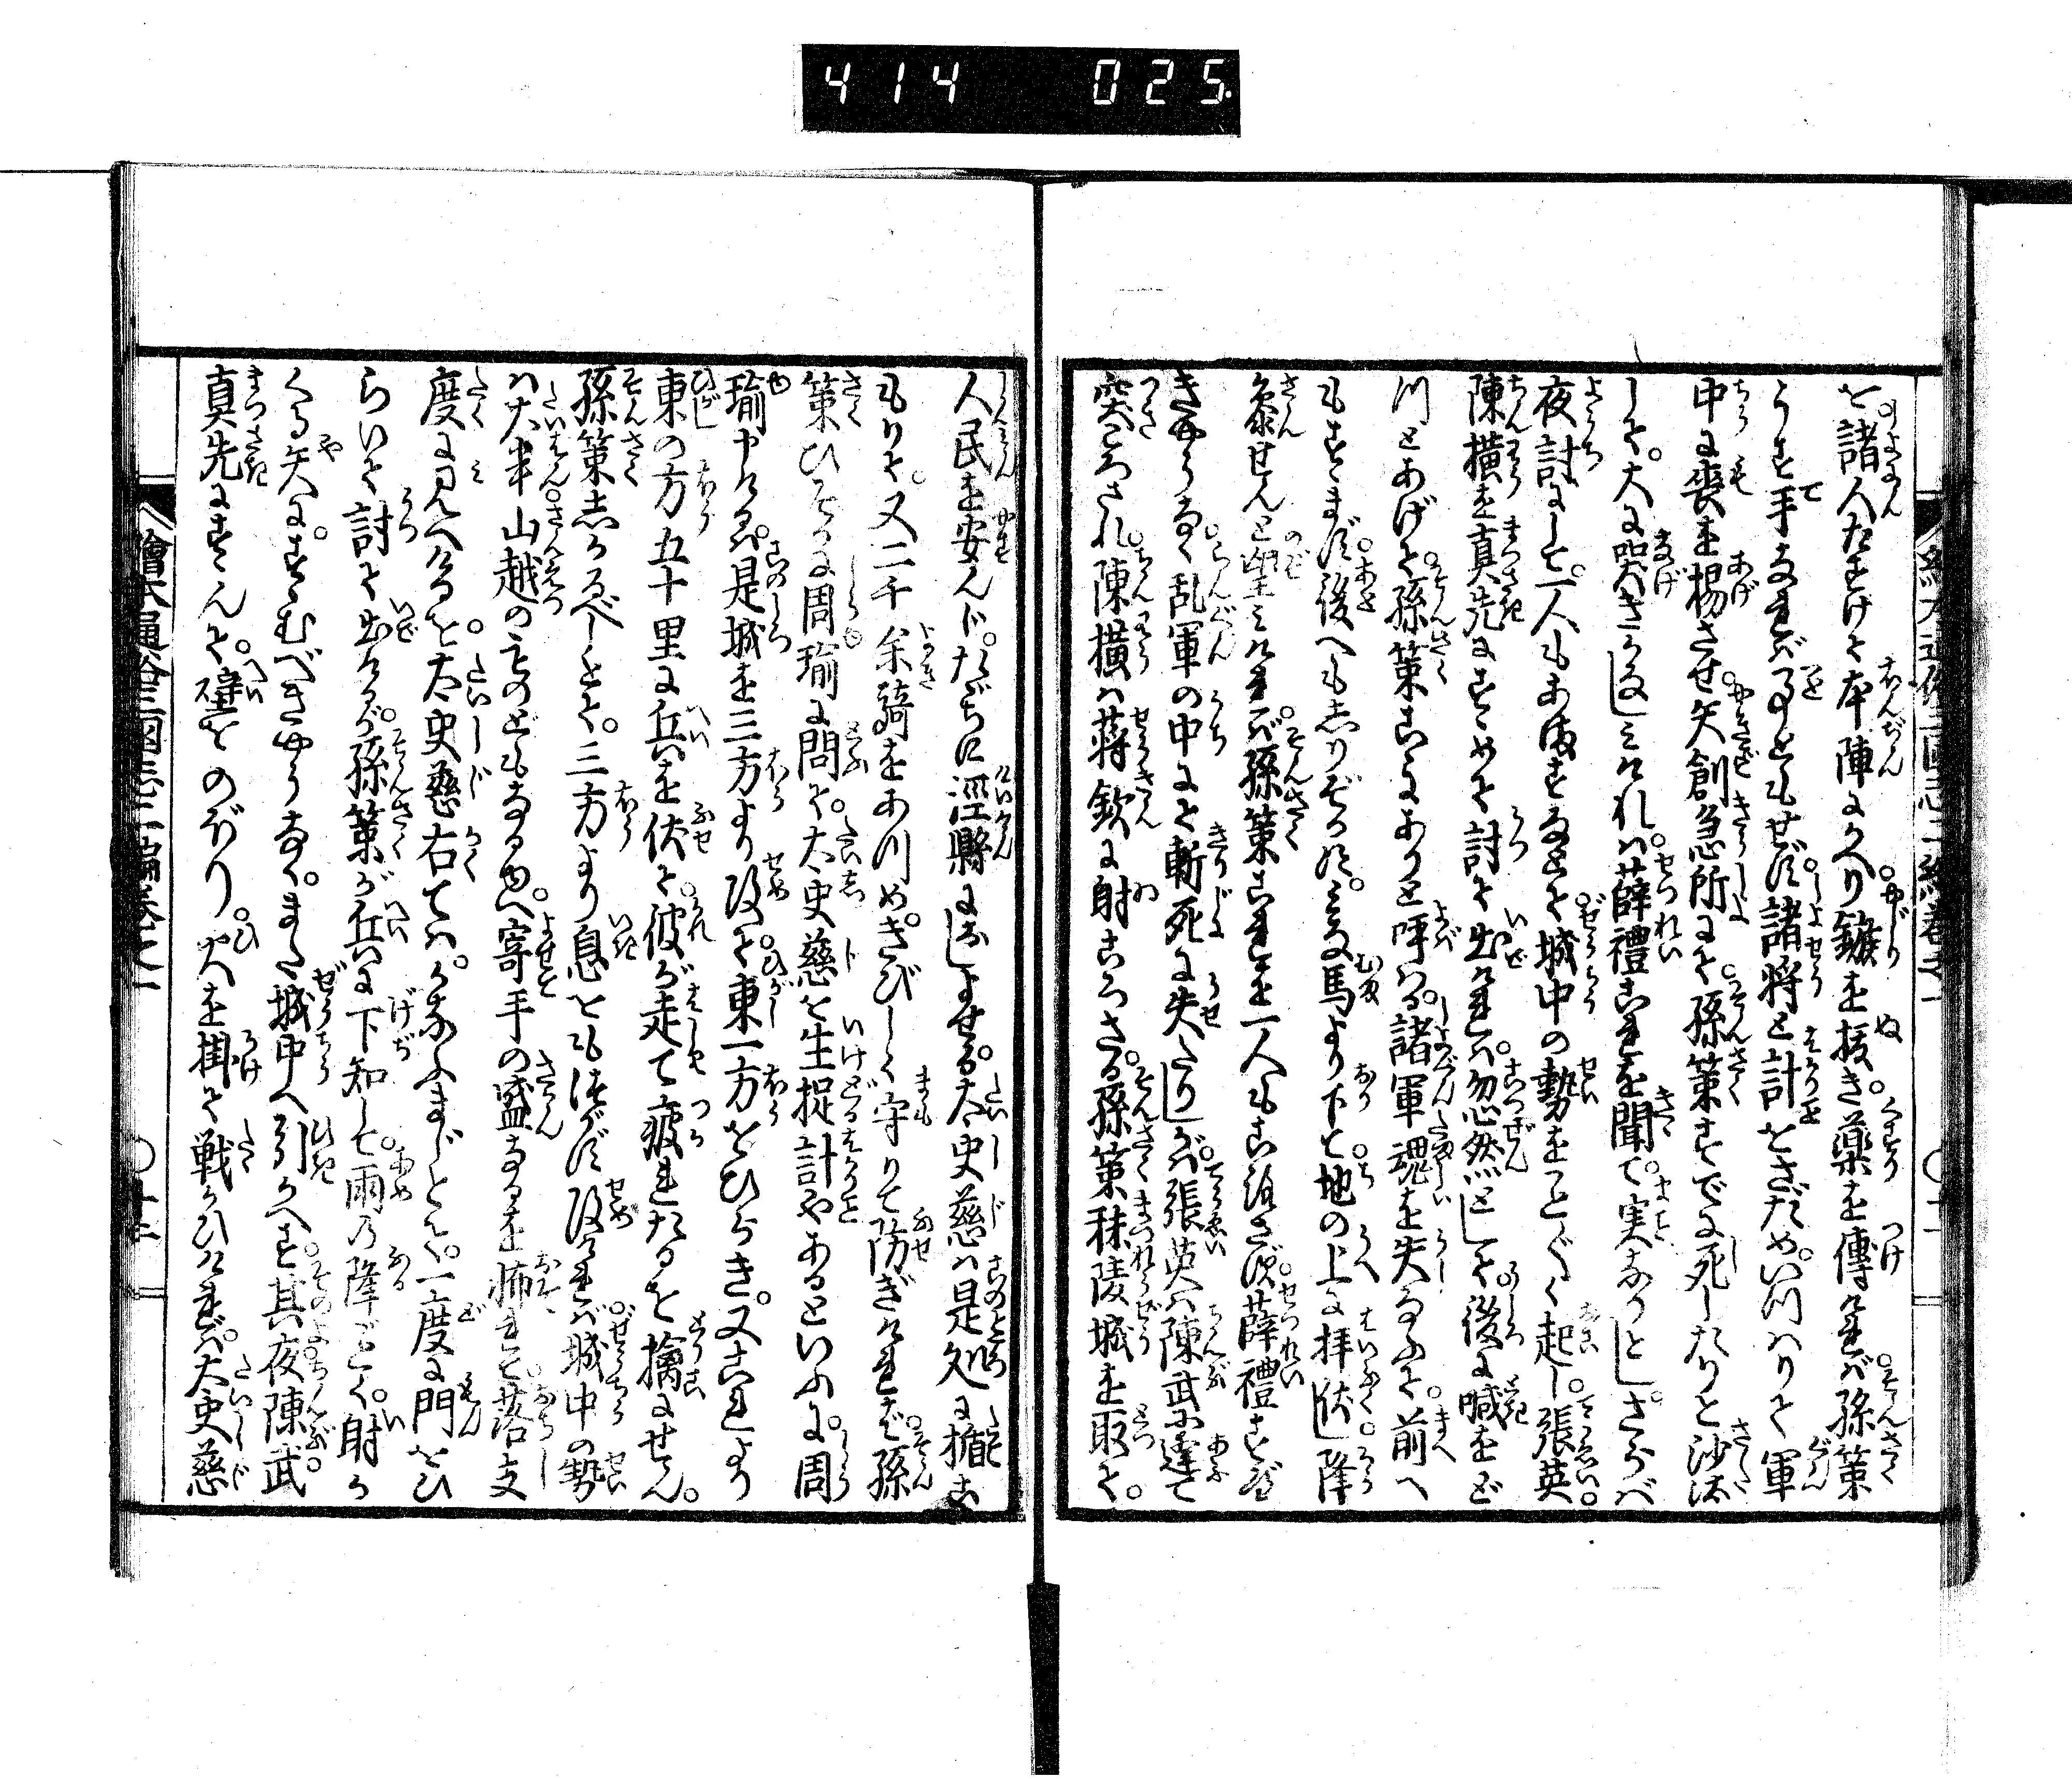 414 025.
を諸人たすけて本陣にかへり鏃を抜き薬を傳ければ孫策
うす手なれば事ともせず諸将と計をさだめいつはりて軍
中に喪を揚させ矢創急所にて孫策すでに死したりと沙汰
して大に哭きかなしみければ薛禮これを聞て実なりとしさらば
夜討にして一人もあまさずとて城中の勢をことごとく起し張英
陳横を真先にすゝめて討て出ければ忽然として後に喊をど
つとあげて孫策こゝにありと呼はる諸軍魂を失なふて前へ
もすゝまず後へもしりぞかずみな馬より下て地の上に拝伏し降
参せんと望みければ孫策これを一人もころさず薛禮すゞ
きやうなく乱軍の中にて斬死に失たりしが張英は陳武に逢て
突ころされ陳横は蒋欽に射ころさる孫策秣陵城を取て
人民を安んじたゞちに涇縣におしよせる太史慈は是処に楯こ
もりて又二千余騎をあつめきびしく守りて防ぎければ孫
策ひそかに周瑜に問て太史慈を生捉計やあるといふに周
瑜申けるは是城を三方より攻て東一方をひらき又これより
東の方五十里に兵を伏て彼が走て疲れたるを擒にせん
孫策しかるべしとて三方より息をも継がず攻ければ城中の勢
は大半山越のものどもなるゆへ寄手の盛なるを怖れて落支
度に見へけるを太史慈右ては叶ふまじとて一度に門をひ
らいて討て出けるが孫策が兵に下知して雨の降ごとく射か
くる矢にすゝむべきやうなくまた城中へ引かへす其夜陳武
真先にすゝんで壁をのぼり火を掛て戦かひければ太史慈
繪本通俗三國志二編巻之一